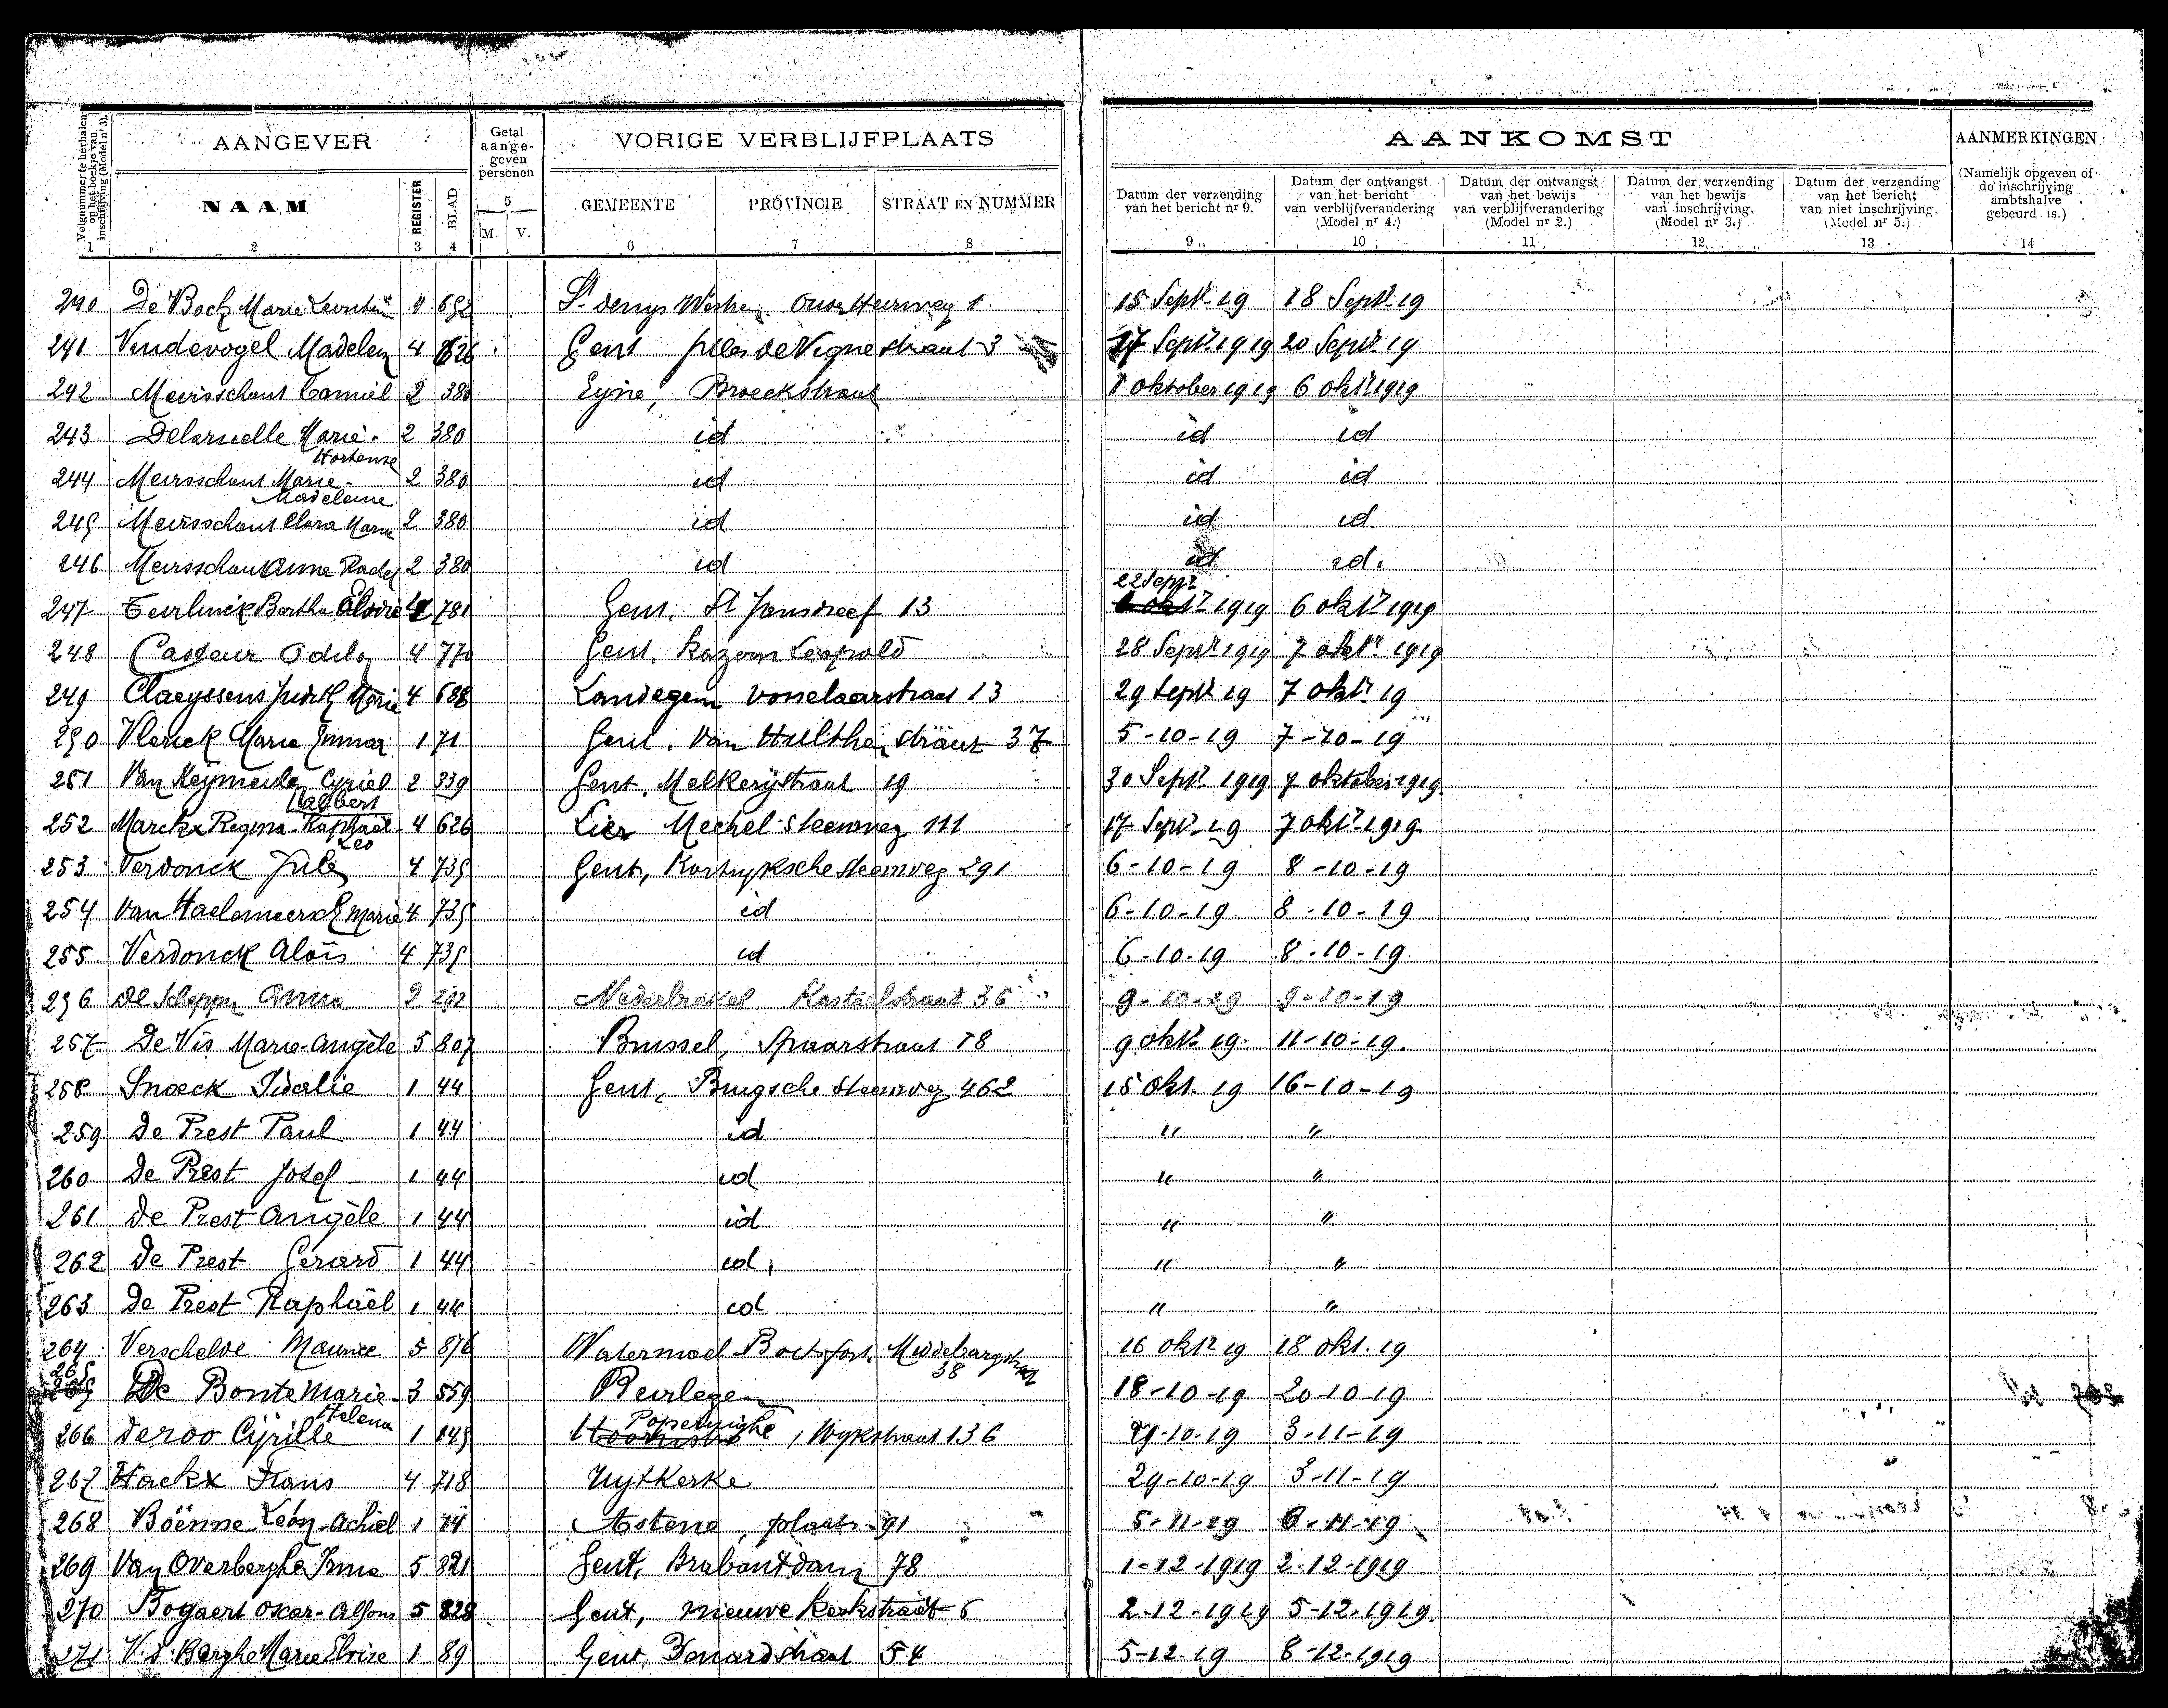 Volgnummer te herhalen op het boekje van inschrijving (Model nr 3).
AANGEVER
Getal aange- geven personen
VORIGE VERBLIJFPLAATS
AANKOMST
AANMERKINGEN
NAAM
REGISTER
BLAD
5
M. V.
GEMEENTE
PROVINCIE
STRAAT EN NUMMER
Datum der verzending van het bericht nr 9.
Datum der ontvangst van het bericht van verblijfverandering (Model nr 4.)
Datum der ontvangst van het bewijs van verblijfverandering (Model nr 2.)
Datum der verzending van het bewijs van inschrijving. (Model nr 3.)
Datum der verzending van het bericht van niet inschrijving. (Model nr 5.)
(Namelijk opgeven of de inschrijving ambtshalve gebeurd is.)
1 2 3 4 6 7 8 9 10 11 12 13 14
240 De Bock Marie Leontin 4 692 St denys Westrem 1 15 Sept. 19 18 Sept. 19
241 Vindevogel Madelen 4 626 Gent De Vigne straat 3 17 Sept. 1919 20 Sept. 19
242 Meirsschaut Camiel 2 380 Eyne, Broeckstraat 1 oktober 1919 6 okt. 1919
243 Delaruelle Marie- Hortense 2 380 id id id
244 Meirsschaut Marie- Madeleine 2 380 id id id
245 Meirsschaut Clara Maria 2 380 id id id.
246 Meirsschaut Anna Rachel 2 380 id id id.
247 Teirlinck Bertha Elodie 4 781 Gent. St Jansdreef 13 22 Sept 1919 6 okt 1919
248 Casteur Odila 4 770 Gent. Kazern Leopold 28 Sept. 1919 7 okt. 1919
249 Claeyssens Judith Marie 4 688 Landegem Vosselaarstraat 13 29 Sept 19 7 okt. 19
250 Vlerick Maria Emma 1 71 Gent. Van Hulthem straat 37 5-10-19 7-10-19
251 Van Keymeulen Cyriel 2 339 Gent, Melkerijstraat 19 30 Sept. 1919 7 oktober 1919
252 Marckx Regina-Raphaël- Leo 4 626 Lier Mechel. Steenweg 111 17 Sept. 19 7 okt. 1919
253 Verdonck Jules 4 735 Gent, Kortrijksche Steenweg 291 6-10-19 8-10-19
254 Van Haelemeersch Marie 4 735 id 6-10-19 8-10-19
255 Verdonck Aloïs 4 735 id 6-10-19 8-10-19
256 De Schepper Anna 2 292 Nederbrakel Kasteelstraat 36 9-10-19 9-10-19
257 De Vis Marie-Angèle 5 807 Brussel, Spaarstraat 18 9 okt. 19. 11-10-19.
258 Snoeck Idalie 1 44 Gent, Brugsche Steenweg 462 15 okt. 19 16-10-19
259 De Prest Paul 1 44 id " "
260 De Prest Josef 1 44 id " "
261 De Prest Angèle 1 44 id " "
262 De Prest Gerard 1 44 id. " "
263 De Prest Raphaël 1 44 id " "
264 Verschelde Maurice 5 876 Watermael-Boitsfort Middelburgstraat 38 16 okt 19 18 okt. 19
265 De Bonte Marie- Helena 3 559 Beirlegem 18-10-19 20-10-19
266 Deroo Cyrille 1 145 Poperinghe, Wijkstraat 136 29-10-19 3-11-19
267 Hackx Frans 4 718 Uytkerke 29-10-19 3-11-19
268 Böenne Leon-Achiel 1 14 Astene, plaats 91 5-11-19 6-11-19
269 Van Overberghe Irma 5 821 Gent, Brabantdam 78 1-12-1919 2-12-1919
270 Bogaert Oscar-Alfons 5 828 Gent, nieuwe Kerkstraat 6 2-12-1919 5-12-1919.
271 V. d. Berghe Marie Elvire 1 89 Gent, straat 54 5-12-19 8-12-1919